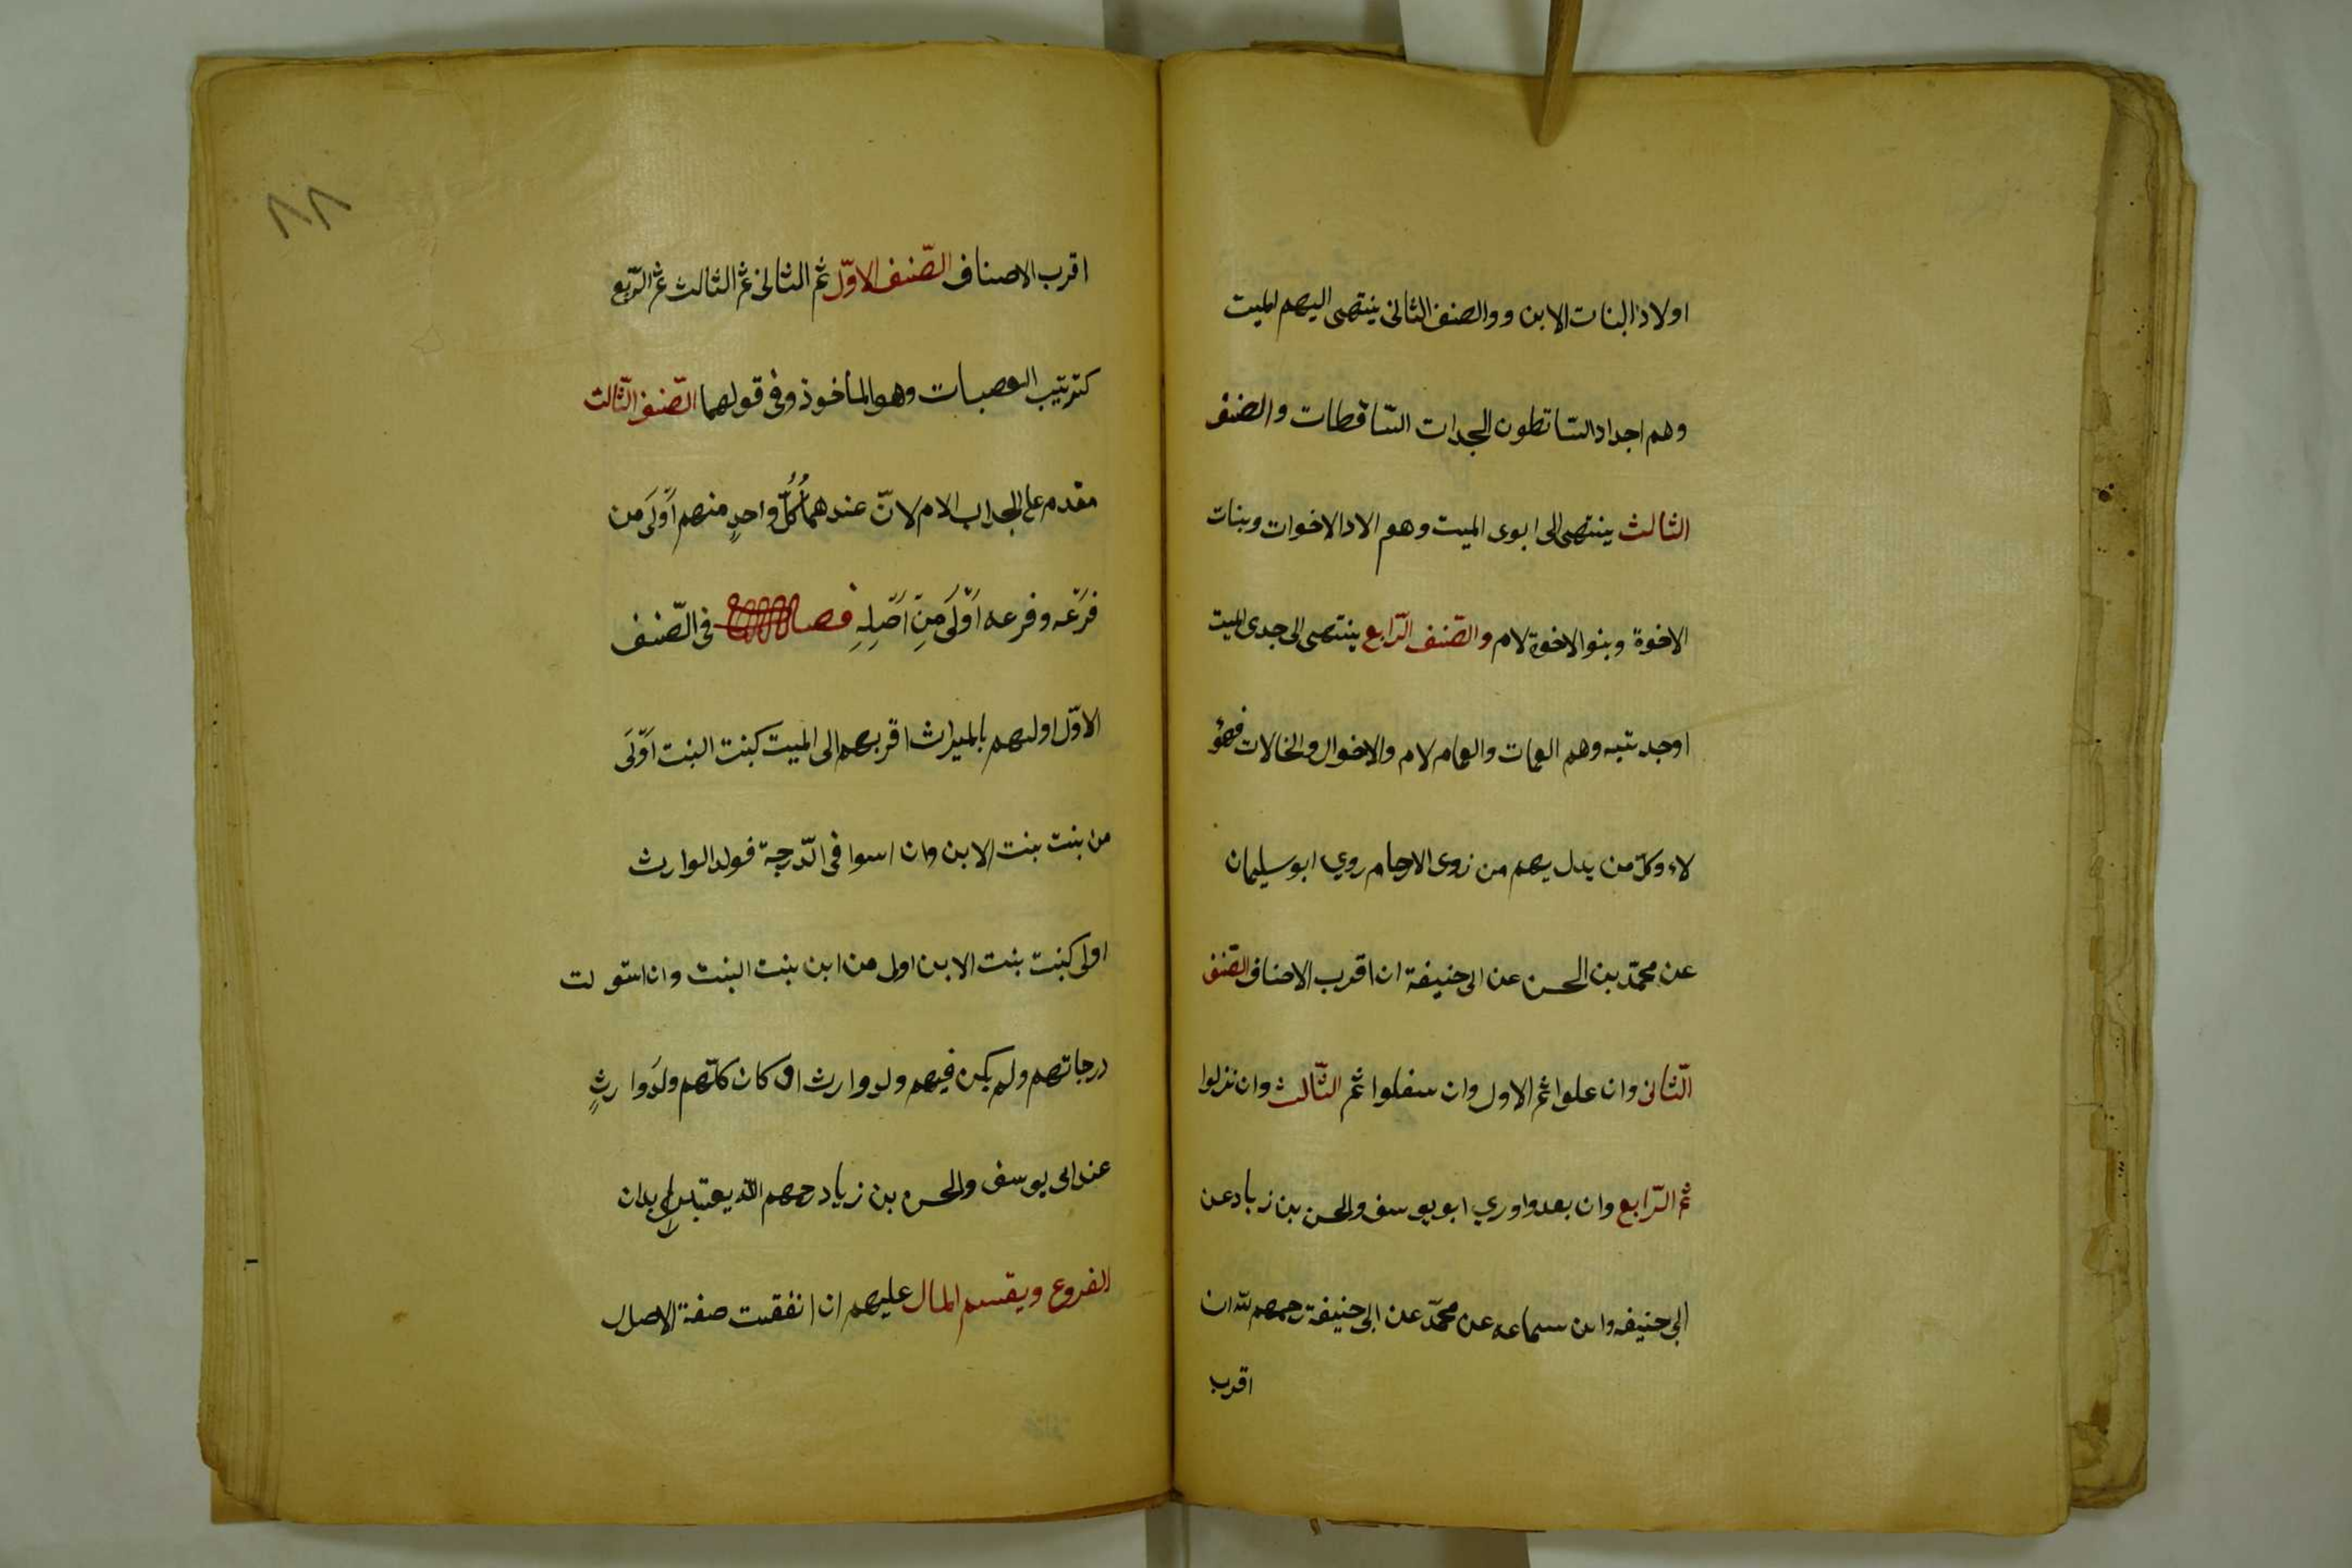 اولاد البنات الابن ووالصنف الثانى ينتهى اليهم الميت
وهم اجداد الساقطون الجدات السّاقطات والصنف
الثالث ينتهى الى ابوى الميت وهم الاد الاخوات وبنات
الاخوة وبنوا الاخوة لام والصّنف الرّابع ينتهى الى جدى الميت
اوجدتيه وهم العمات والعمام لام والاخوال والخالات فهؤ
لاء وكل من يدل بهم من زوى الارحام روي ابو سليمان
عن محمّد بن الحسن عن ابى حنيفة ان اقرب الاصناف الصّنف
الثّانى وان علوا ثم الاول وان سفلوا ثم الثّالث وان نزلوا
ثم الرّابع وان بعدوا وري ابو يوسف والحسن بن زياد عن
ابي حنيفه وابن سماعه عن محمّد عن ابى حنيفة رحمهم الله ان
اقرب
٨٨
اقرب الاصناف الصّنف الاوّل ثم الثانى ثم الثالث ثم الرّابع
كترتيب العصبات وهو المأخوذ وفى قولهما الصّنف الثّالث
مقدم على الجد اب الام لانّ عندهما كُلُّ واحدٍ منهم اَوْلَى من
فَرْعه وفرعه اَوْلَى مِنْ اَصْلِهِ فصل فى الصّنف
الاوّل اولهم بالميراث اقربهم الى الميت كبنت البنت اَوْلَى
من بنت بنت الابن وان اسوا فى الدّرجة فولد الوارث
اولى كبنت بنت الابن اولى من ابن بنت البنت وان استو لت
درجاتهم ولم يكن فيهم ولد وارث او كان كلّهم ولَد وارثٍ
عند ابى يوسف والحسن بن زياد رحمهم الله يعتبر ابدان
الفروع ويقسم المال عليهم ان اتفقت صفة الاصول